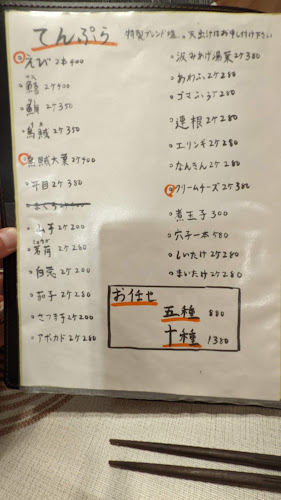 てんぷら
特製ブレンド塩。天出汁はお申し付け下さい
えび 2本400
鱚 2ケ400
烏賊 2ケ350
烏賊大葉 2ケ400
平目 2ケ380
山芋 2ケ200
茗荷 2ケ280
白葱 2ケ200
茄子 2ケ280
さつま芋 2ケ200
アボカド 2ケ280
汲みあげ湯葉 2ケ380
あわふ 2ケ280
ゴマふ 2ケ280
連根 2ケ280
エリンギ 2ケ280
なんきん 2ケ280
クリームチーズ 2ケ380
煮玉子 300
穴子一本 580
しいたけ 2ケ280
まいたけ 2ケ280
お任せ
五種 880
十種 1380